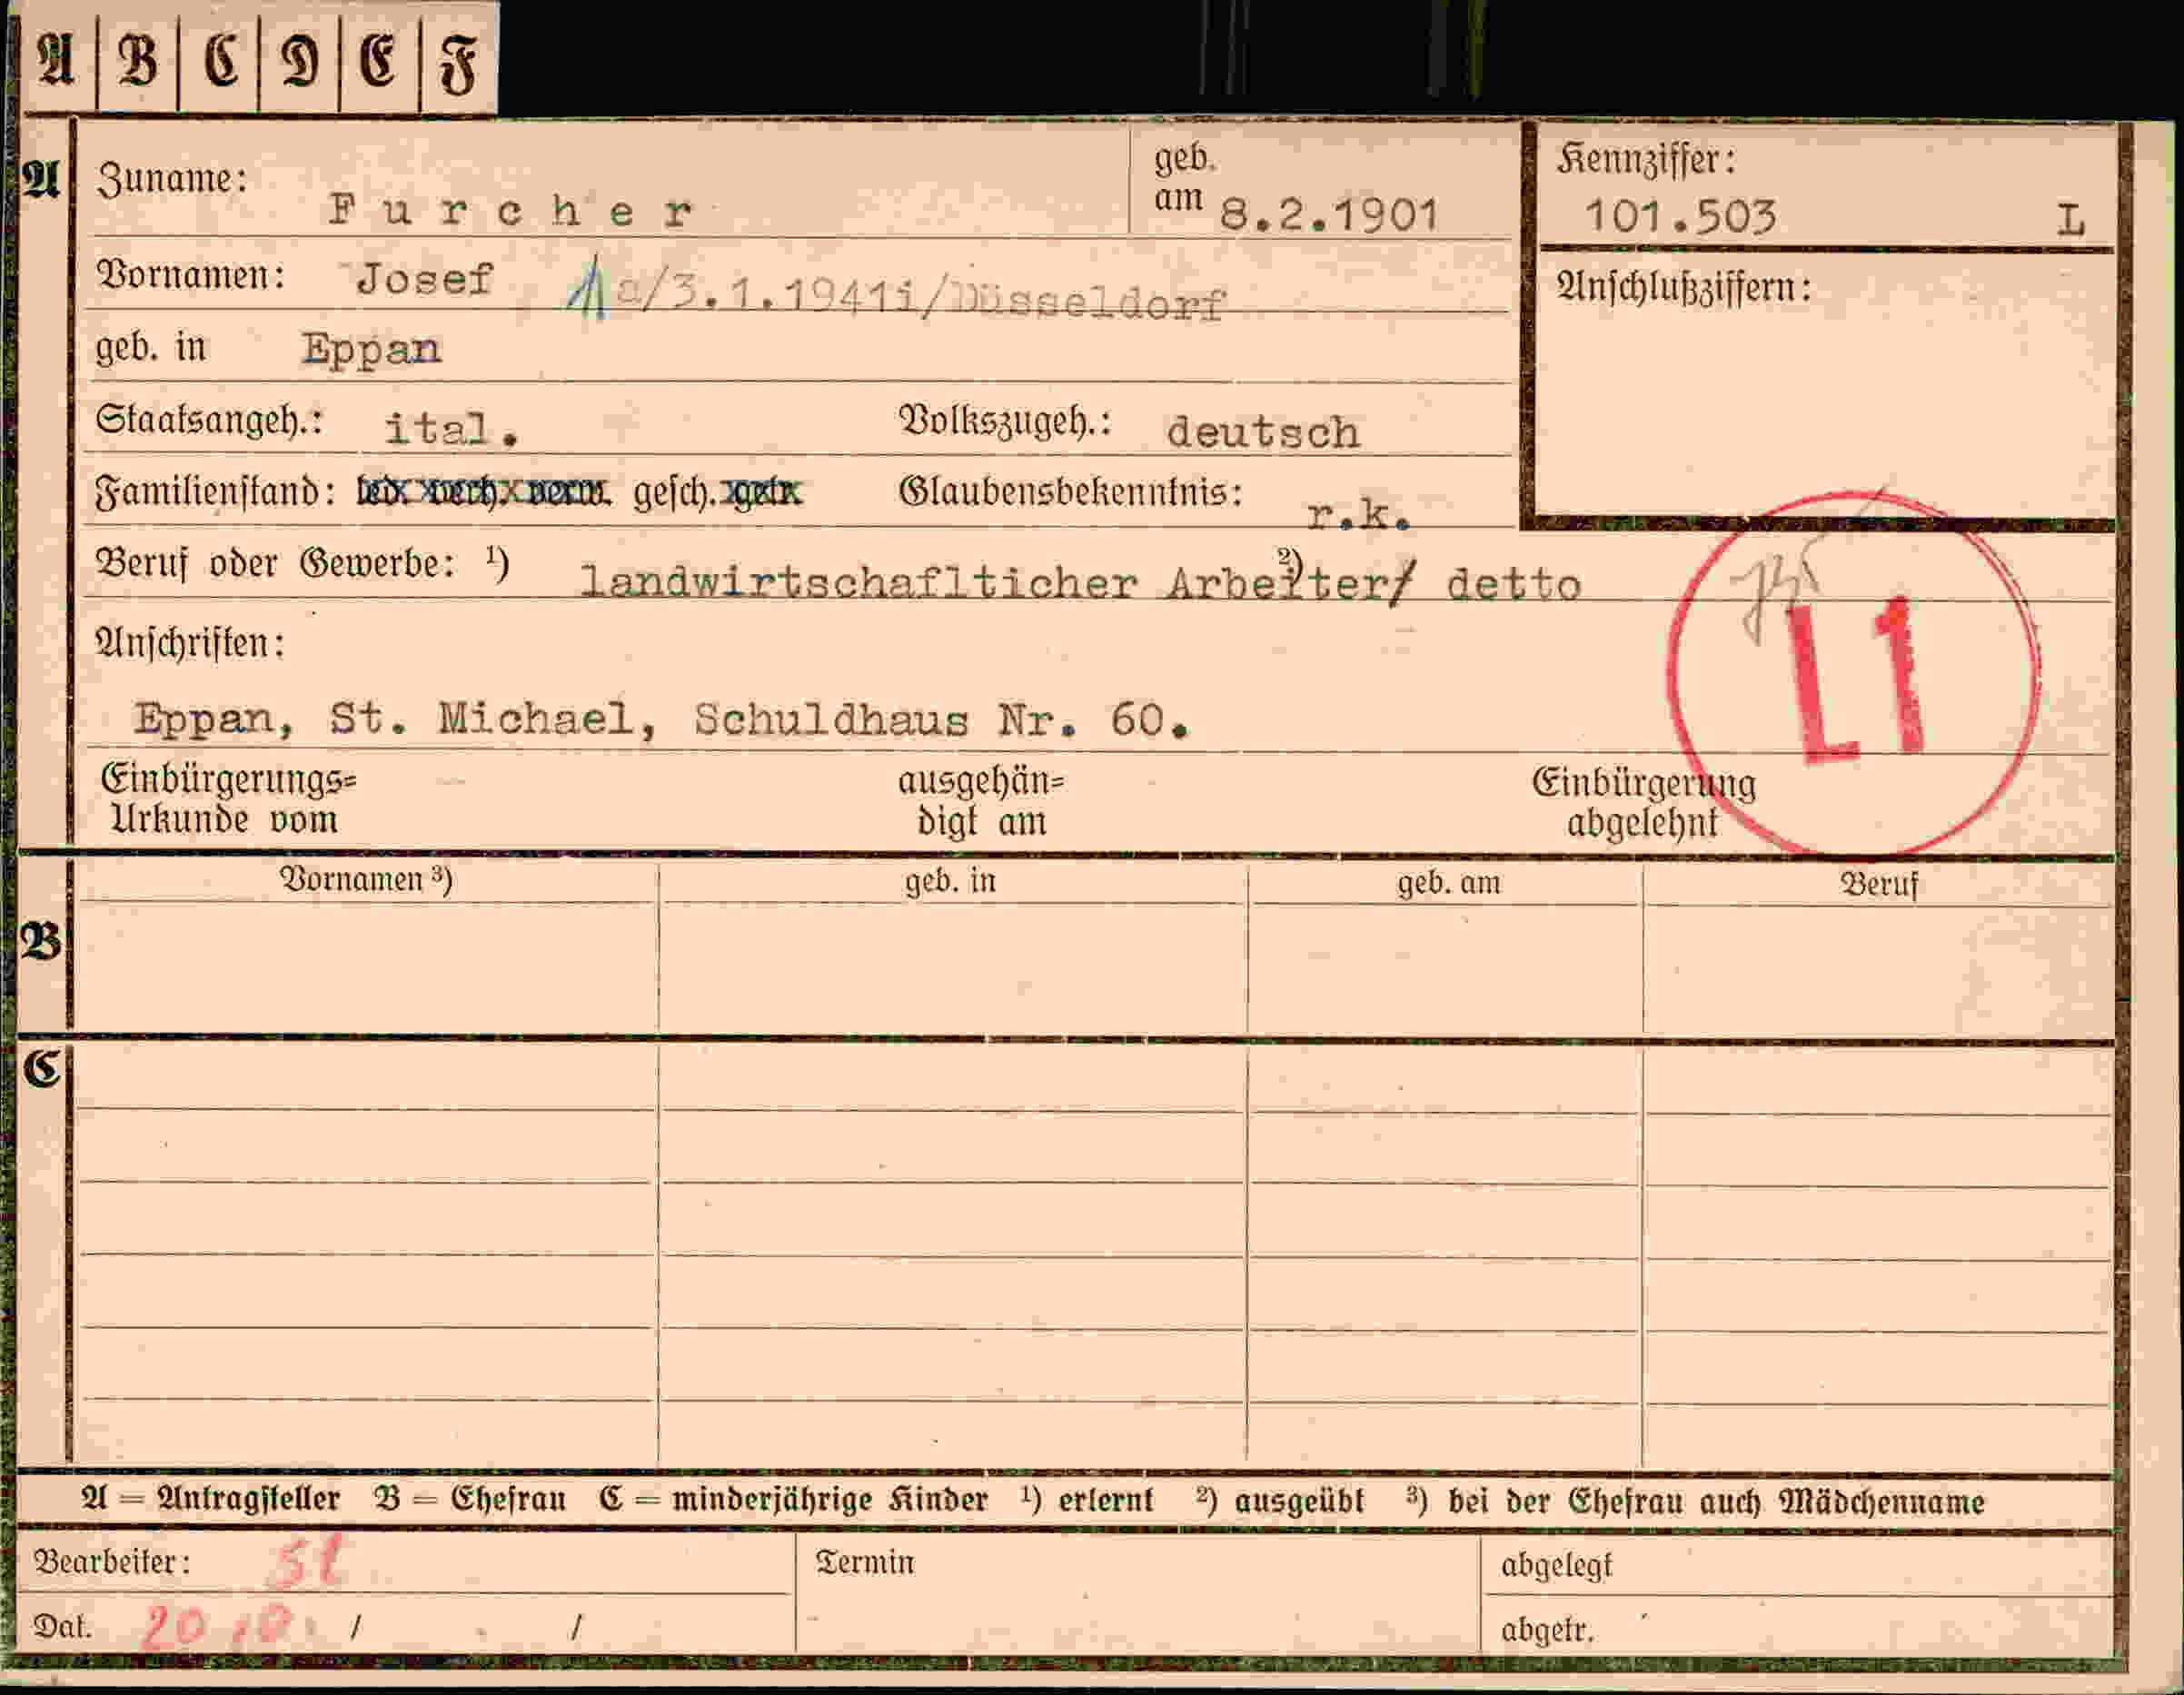 A B C D E F
A
Zuname: Furcher
geb. am 8.2.1901
Kennziffer:
101.503 L
Vornamen: Josef a/3.1.1941i/Düsseldorf
Anschlußziffern:
geb. in Eppan
Staatsangeh.: ital. Volkszugeh.: deutsch
Familienstand: led. verh. verw. gesch. getr. Glaubensbekenntnis: r.k.
Beruf oder Gewerbe: ¹) landwirtschaflticher Arbeiter/ ²) detto
Anschriften:
L1
Eppan, St. Michael, Schuldhaus Nr. 60.
Einbürgerungs=
Urkunde vom
ausgehän=
digt am
Einbürgerung
abgelehnt
Vornamen ³) geb. in geb. am Beruf
B
C
A = Antragsteller B = Ehefrau C = minderjährige Kinder ¹) erlernt ²) ausgeübt ³) bei der Ehefrau auch Mädchenname
Bearbeiter: Termin abgelegt
Dat. 20 / / abgetr.